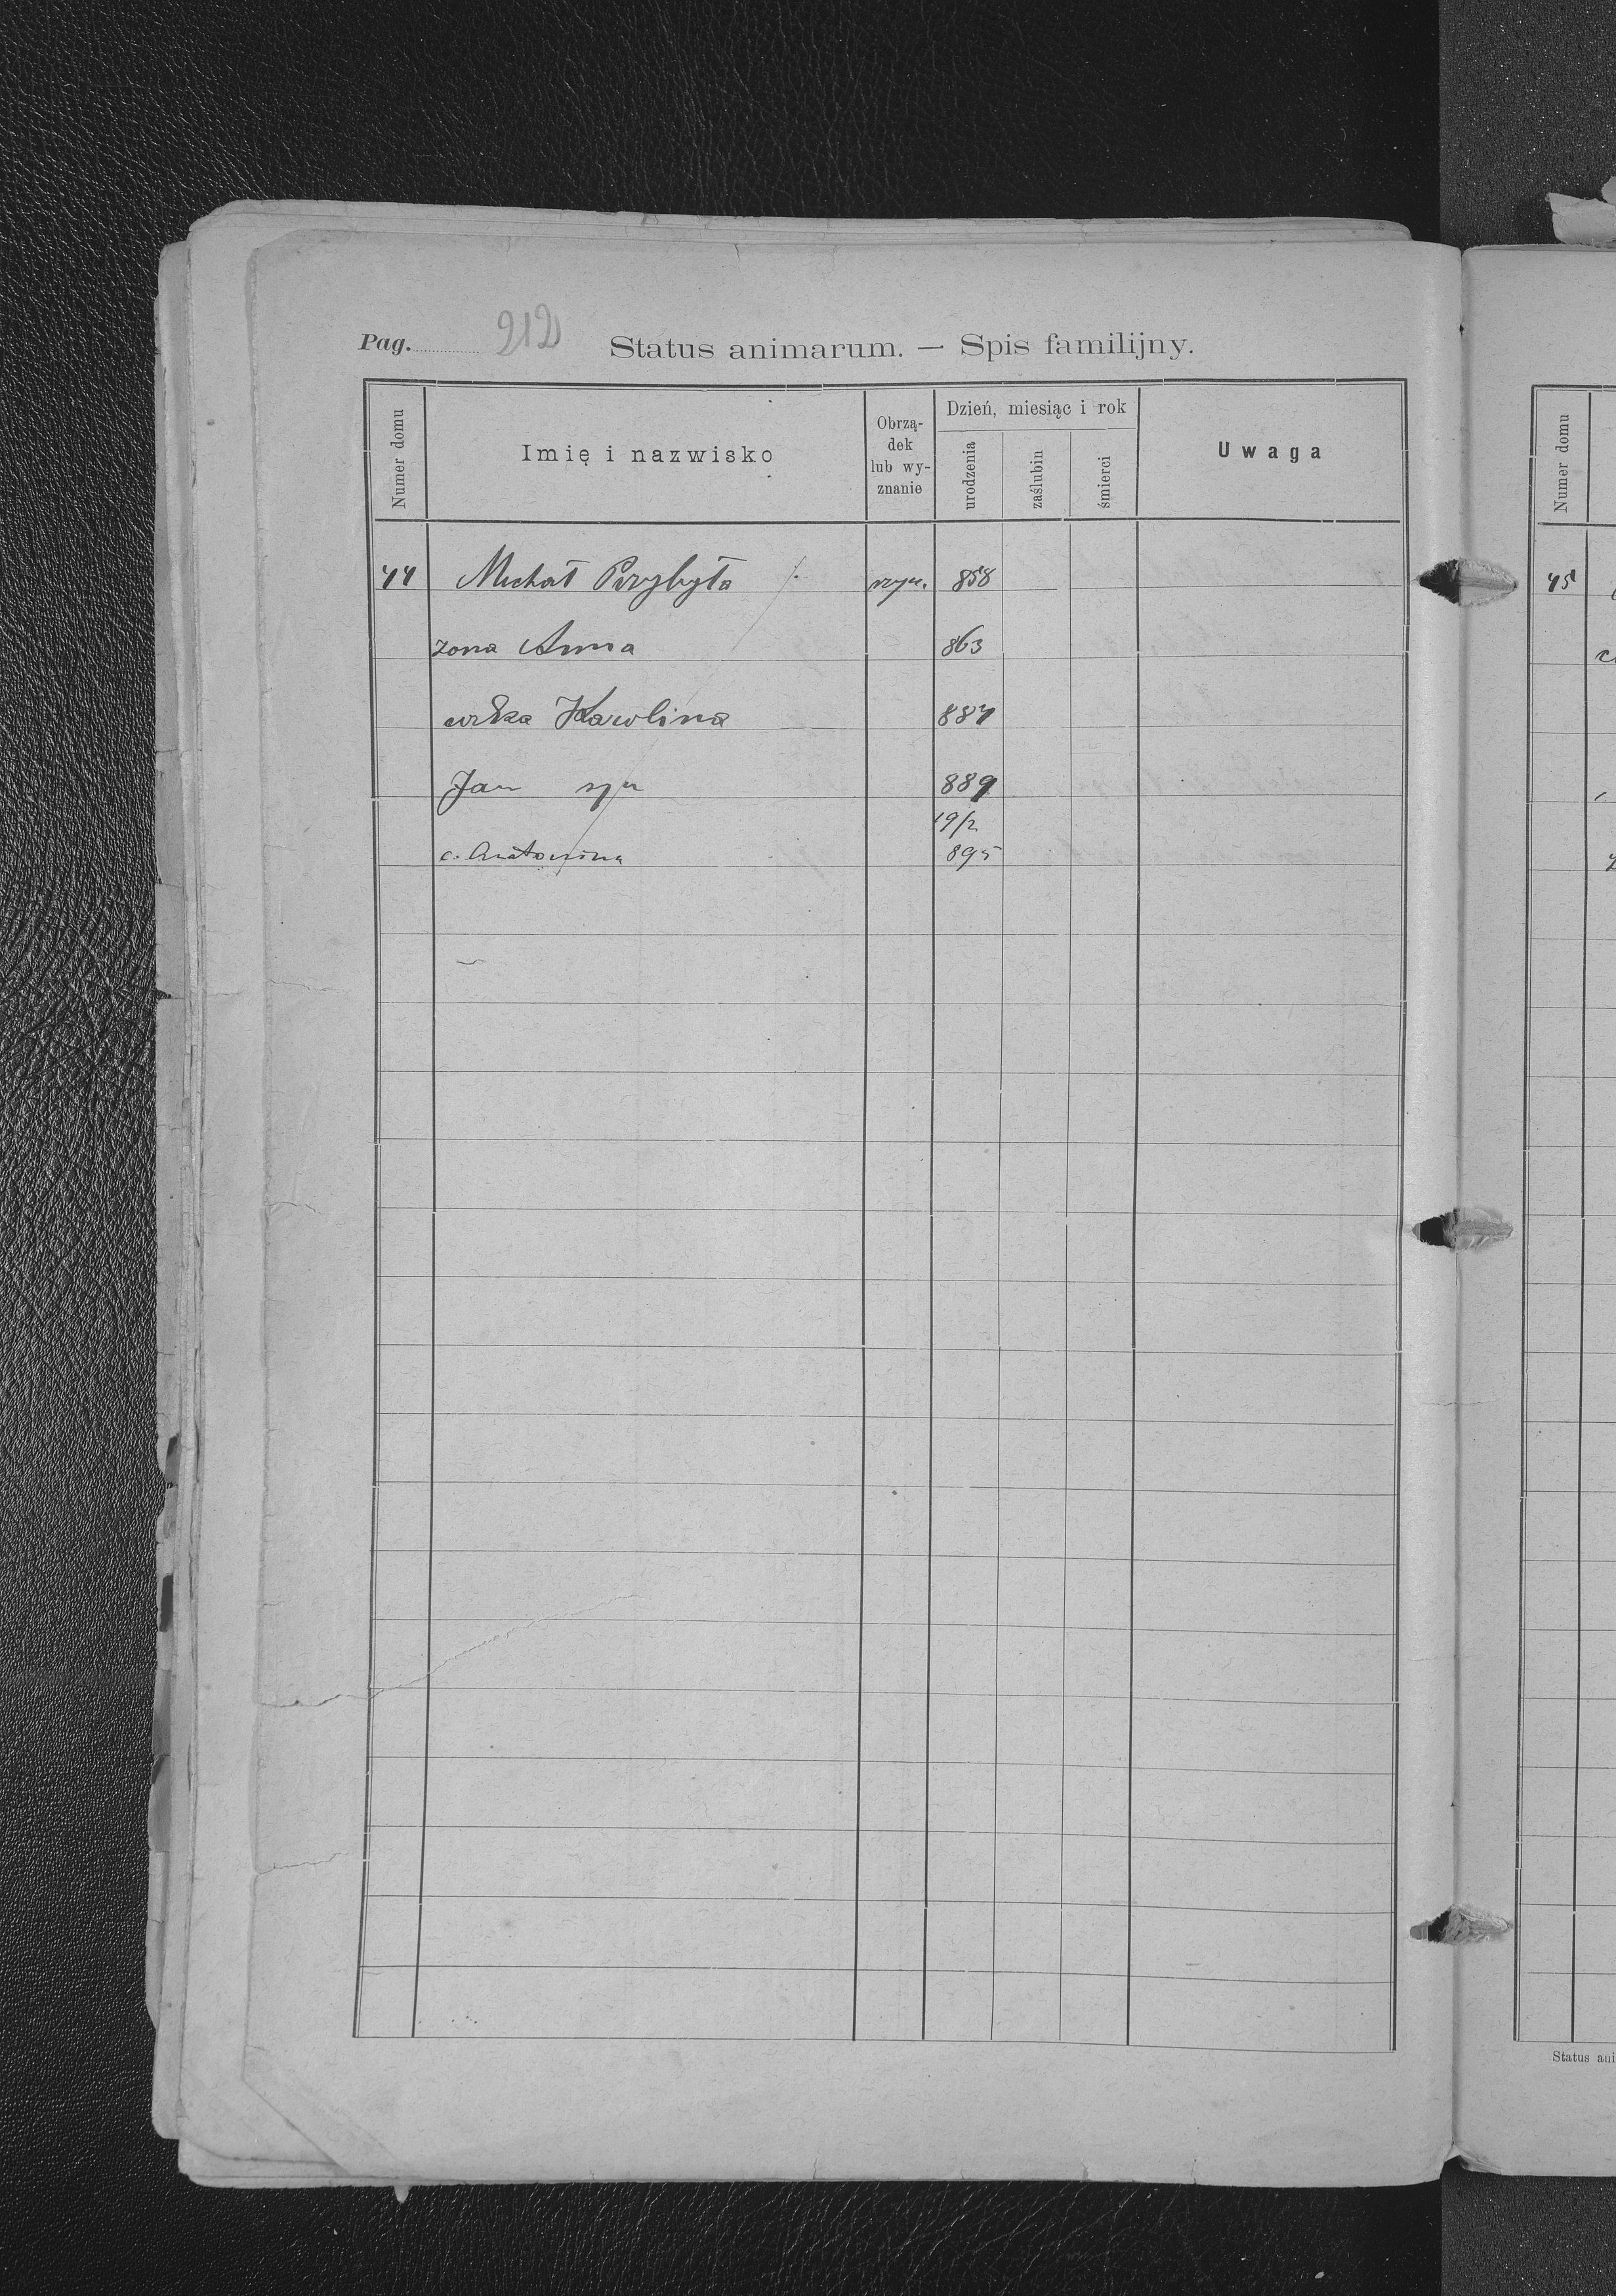 Pag. 212 Status animarum. — Spis familijny.
Numer domu
Imię i nazwisko
Obrzą-
dek
lub wy-
znanie
Dzień, miesiąc i rok
urodzenia
zaślubin
śmierci
Uwaga
44 Michał Przybyła rzym. 858
zona Anna 863
curka Karolina 887
Jan syn 889
19/2
c. Antonina 895
Numer domu
45
Status ani